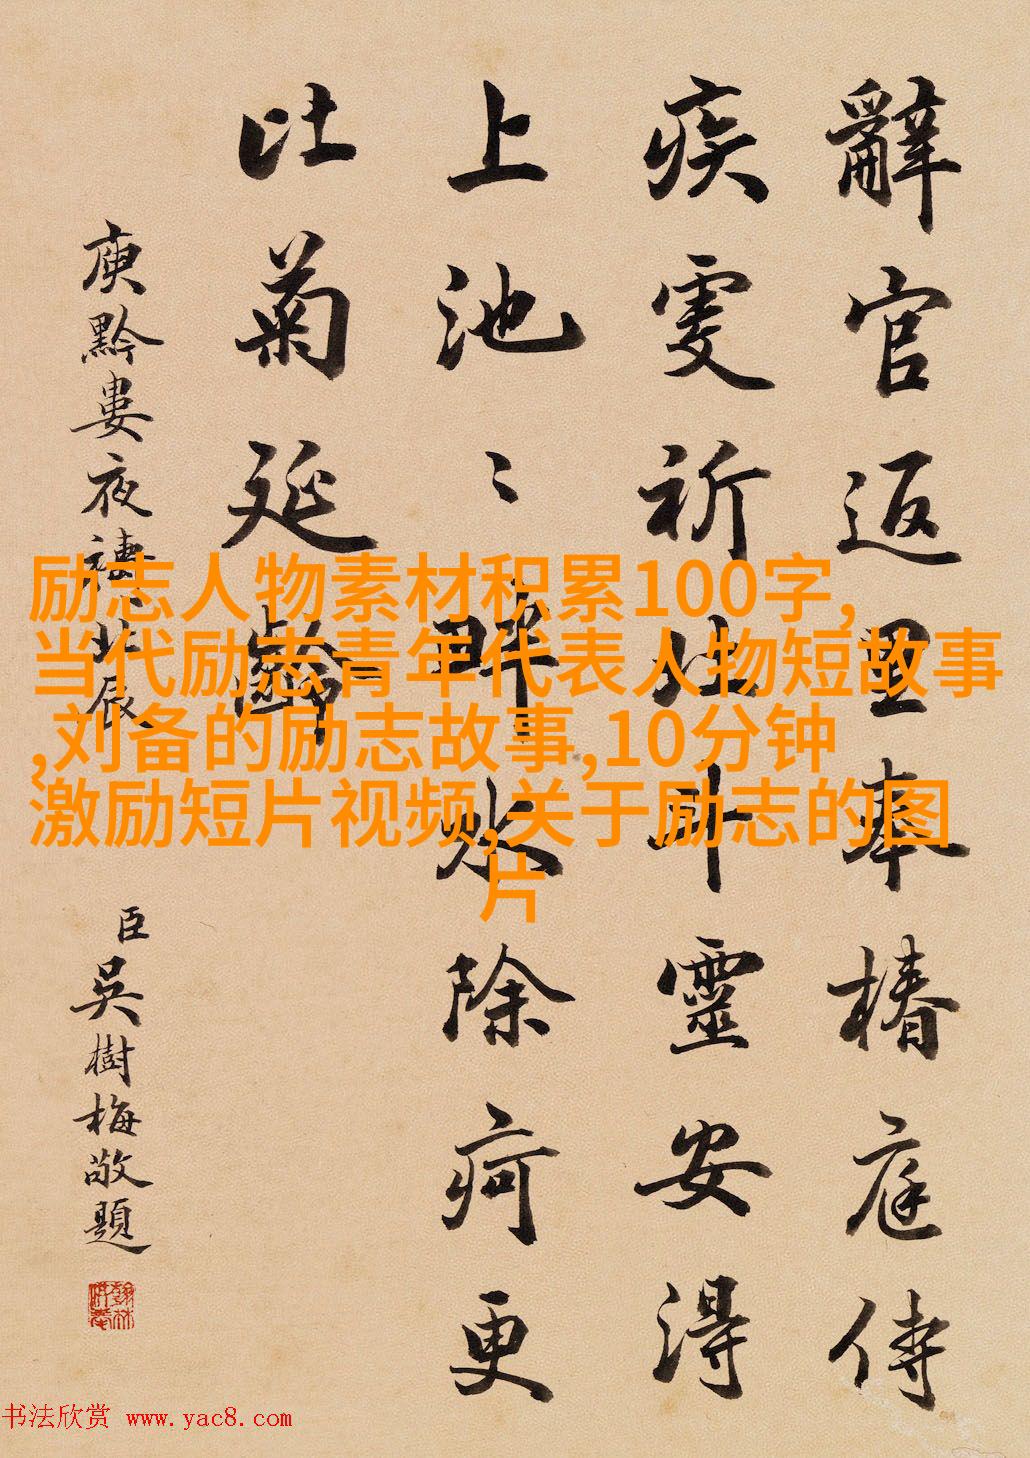 辭官返里奉椿庭侍
疾虔祈北斗靈安得
上池〻畔水除疴更
比菊延齡
庾黔婁夜禱北辰
臣吳樹梅敬題
励志人物素材积累100字,
当代励志青年代表人物短故事
,刘备的励志故事,10分钟
激励短片视频,关于励志的图
片
书法欣赏 www.yac8.com